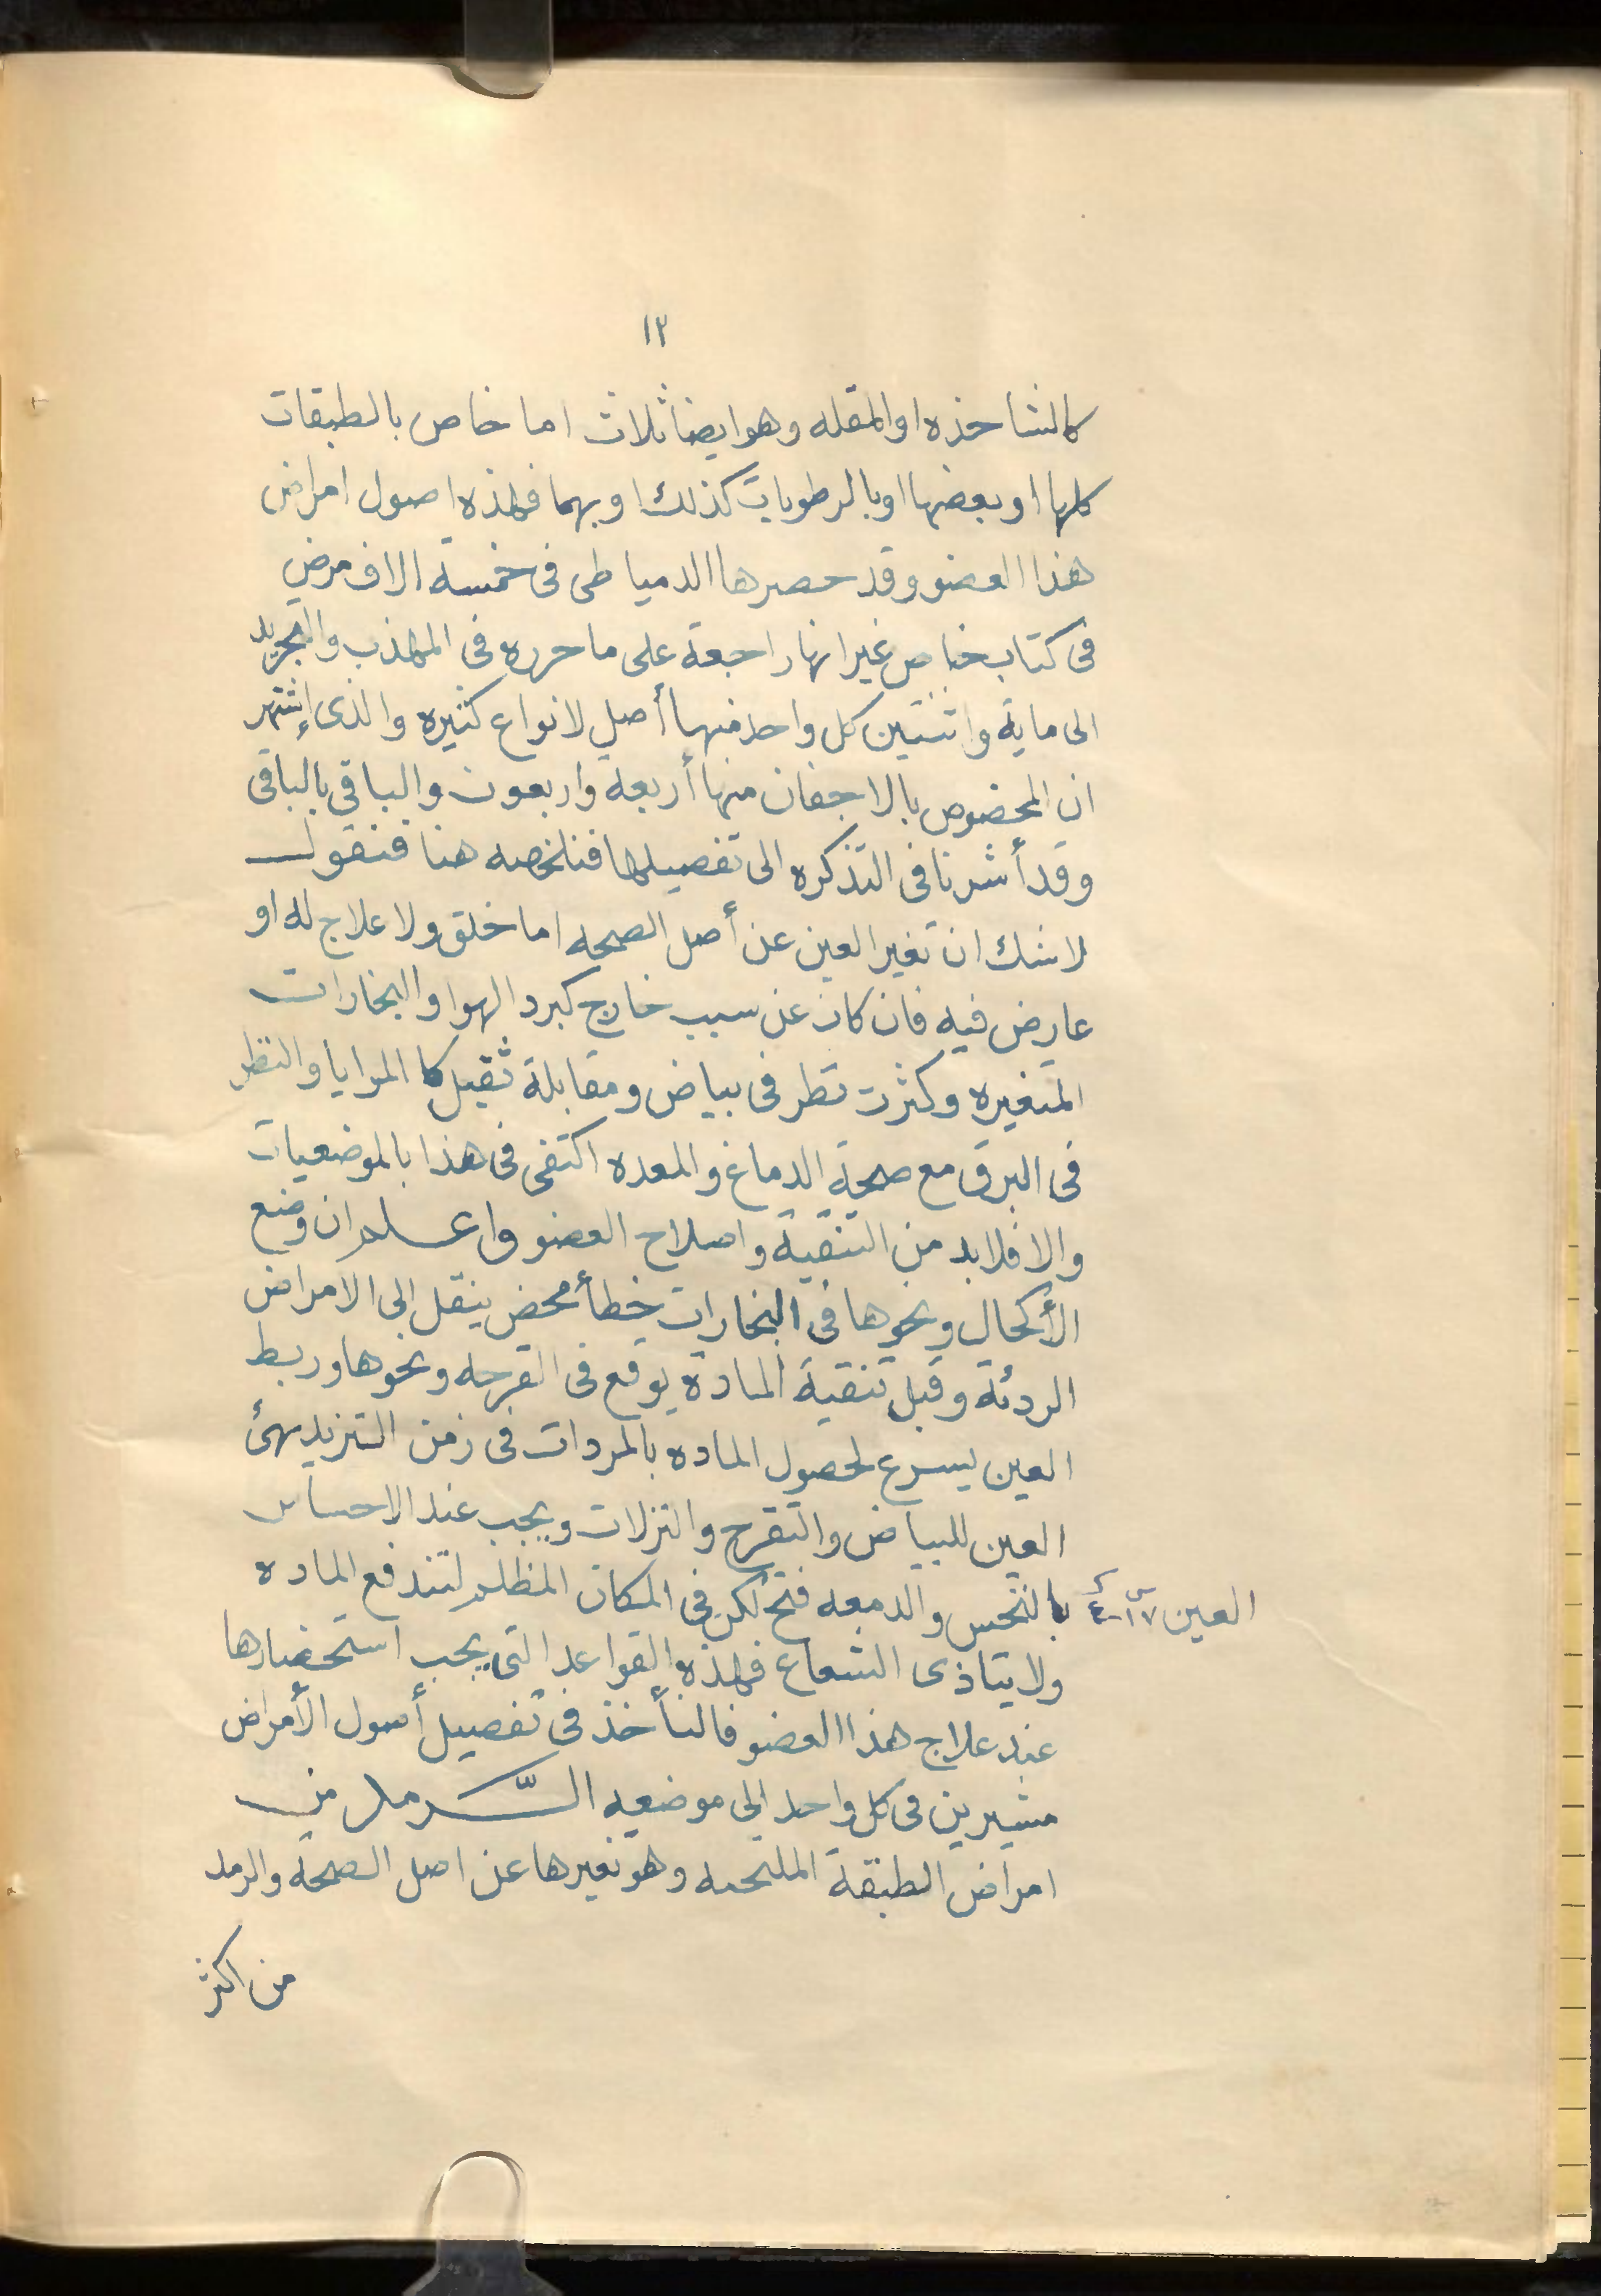 ١٢
كالشاخذه او المقله وهو ايضا ثلاث اما خاص بالطبقات
كلها او بعضها او بالرطوبات كذلك او بهما فهذه اصول امراض
هذا العضو وقد حصرها الدمياطى فى خمسة الاف مرض
فى كتاب خاص غير انها راجعة على ما حرره فى المهذب والتجريد
الى ماية واثنتين كل واحد منها أصل لانواع كثيره والذى إشتهر
ان المخصوص بالاجفان منها أربعه واربعون والباقى بالباقى
وقد أشرنا فى التذكره الى تفصيلها فنلخصه هنا فنقول
لا شك ان تغير العين عن أصل الصحه اما خلق ولا علاج له او
عارض فيه فان كان عن سبب خارج كبرد الهوا والبخارات
المتغيره وكثرت نظر فى بياض ومقابلة ثقيل كا المرايا والنظر
فى البرق مع صحة الدماغ والمعده اكتفى فى هذا بالموضعيات
والا فلابد من التنقية واصلاح العضو واعلم ان وضع
الأكحال ونحوها فى البخارات خطأ محض ينقل الى الامراض
الردئه وقبل تنقية المادة يوقع فى القرحه ونحوها وربط
العين ليسرع لحصول الماده بالمردات فى زمن التزيد يهئ
العين للبياض والتقرح والنزلات ويجب عند الاحساس
بالنخس والدمعه فتح لكن فى المكان المظلم لتندفع الماده
العين ١٧
ولا يتاذى الشعاع فهذه القواعد التى يجب استحضارها
عند علاج هذا العضو فالنأخذ فى تفصيل أصول الأمراض
مشيرين فى كل واحد الى موضعيه الرّمد من
امراض الطبقة الملتحمه وهو تغيرها عن اصل الصحة والرمد
من اكثر